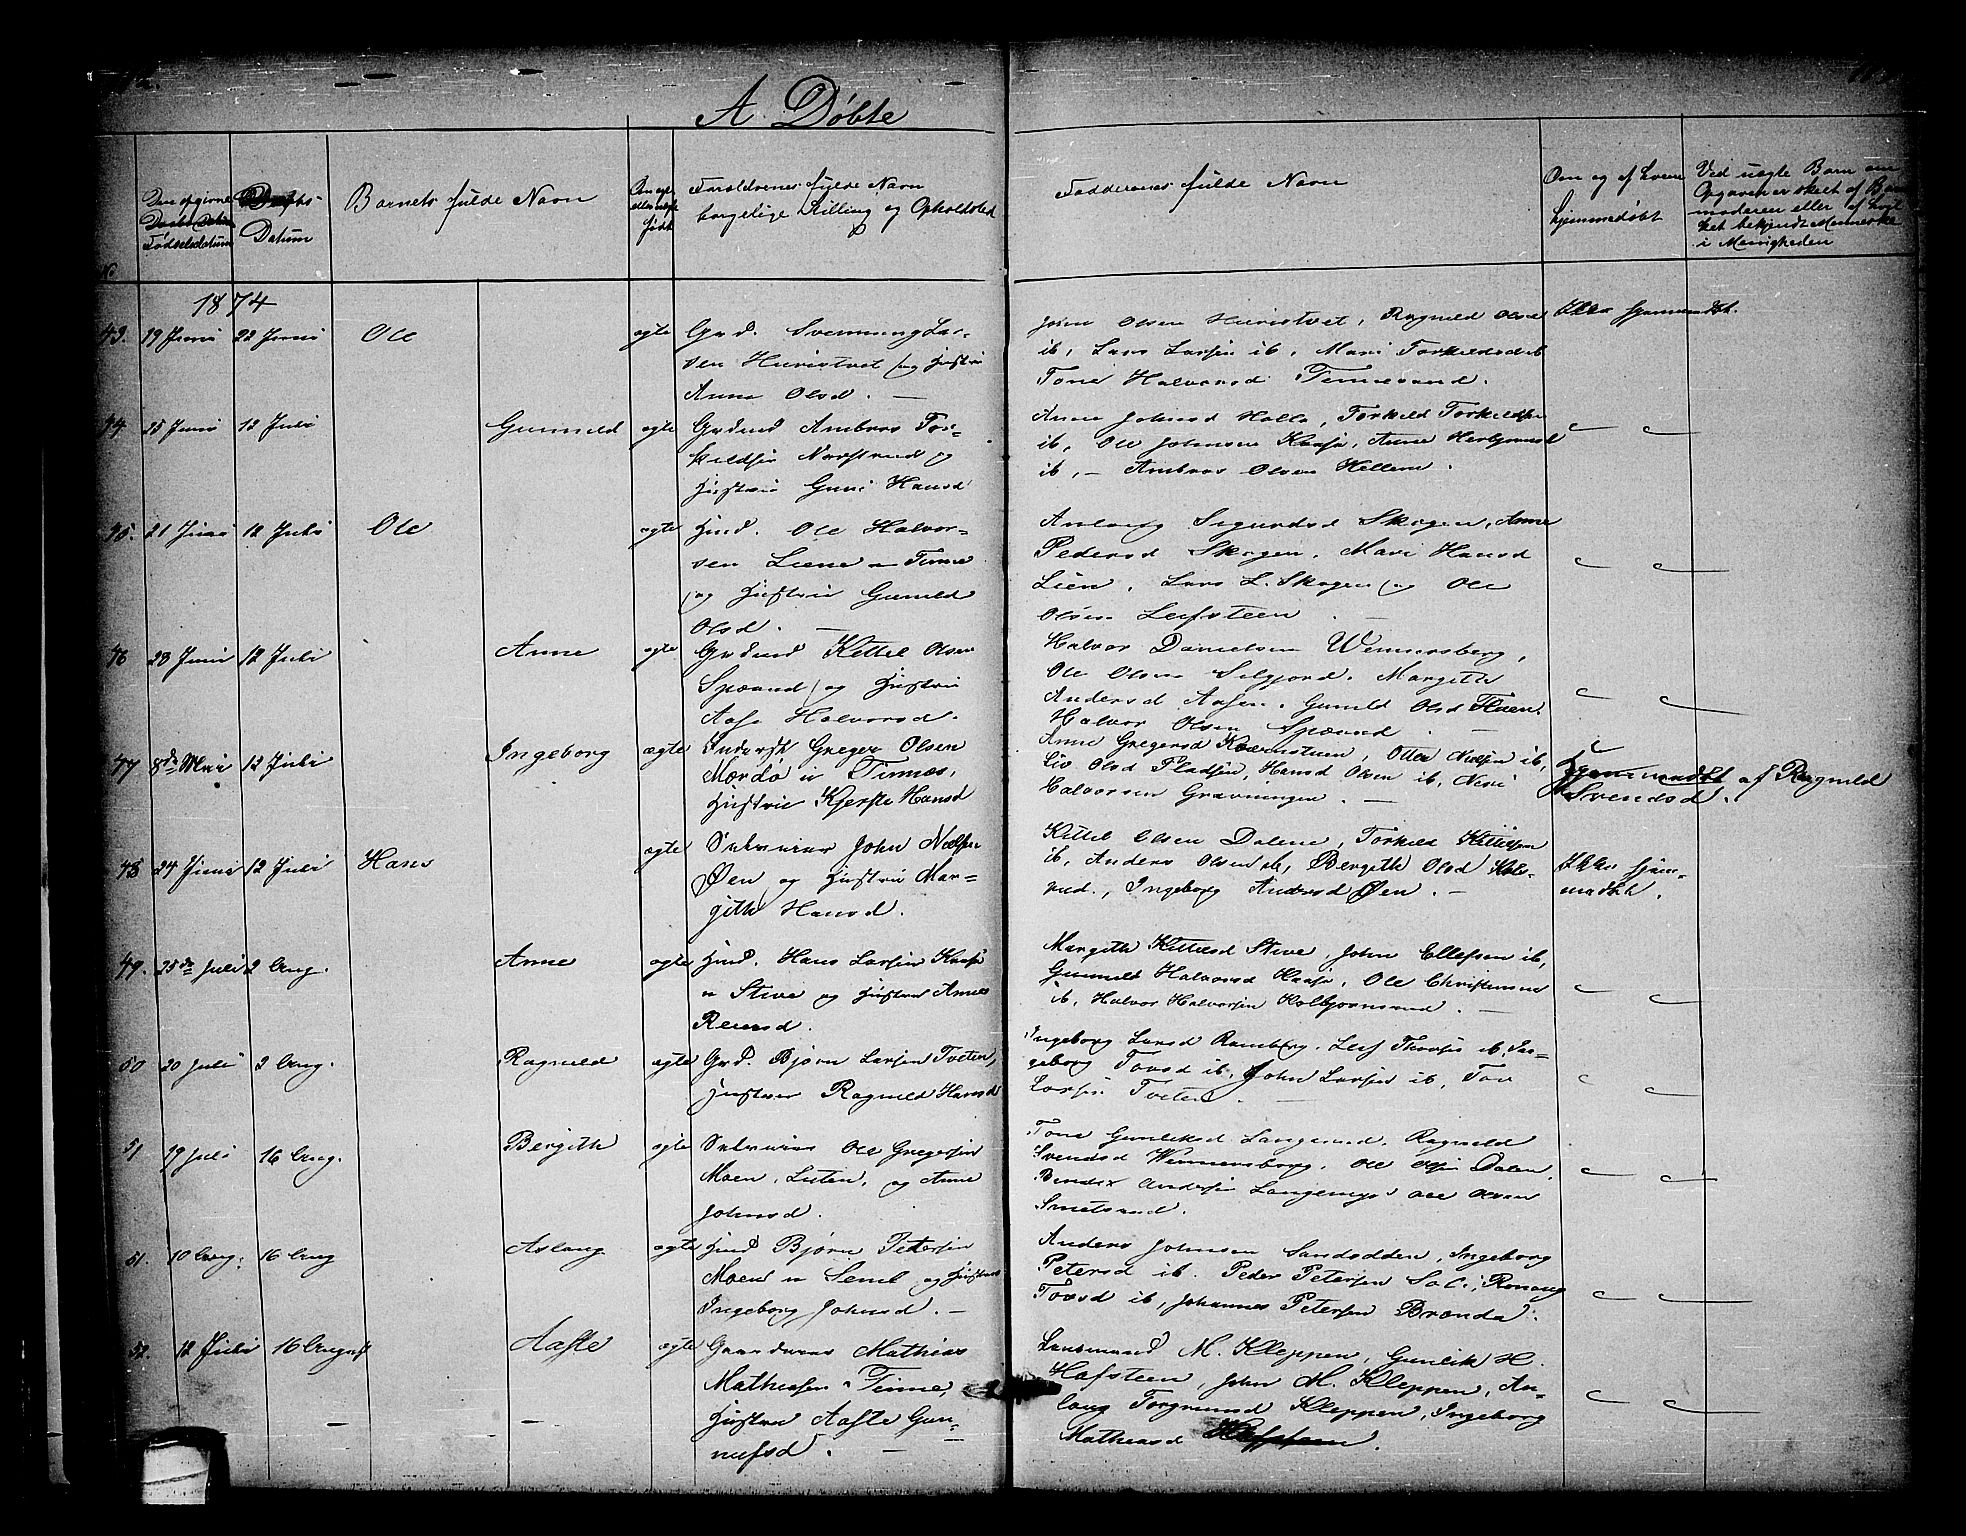 A Døbte
No
Den opgivne
Fødselsdatum
Daabs-
Datum
Barnets fulde Navn
Om ægte
eller uægte
født
Forældrenes fulde Navn
borgelige Stilling og Opholdsted
Faddernes fulde Navn
Om og af hvem
hjemmedøbt
Ved uægte Børn om
Opgaven er skeet af Barne
moderen eller af hvil
ket bekjendt Menneske
i Menigheden
1874
43. 19 Juni 22 Juni Ole ægte Grd. Svennung Lar-
sen Huristvet og Hustru
Anne Olsd. —
John Olsen Huristvet, Ragnild Olsd
ib, Lars Larsen ib, Mari Torkildsd ib
Tone Halvorsd Tinnesand.
Ikke hjemmedøbt.
44 25 Juni 12 Juli Gunnild ægte Grdmd Ambros Tor-
kildsen Narstrud og
Hustru Guni Hansd
Anne Johnsd Holla, Torkild Torkildsen
ib, Ole Johnsen Kaasa, Anne Herbjørnsd
ib, — Ambros Olsen Hellem.
45. 21 Juni 12 Juli Ole ægte Husd. Ole Halvor-
sen Liene u Tinne
og Hustru Gunild
Olsd. —
Anlaug Sigurdsd Skogen, Anne
Pedersd Skogen, Mari Hansd
Lien, Lars L. Skogen og Ole
Olsen Leifsteen
46 28 Juni 12 Juli Anne ægte Grdmd Kittil Olsen
Spæand og Hustru
Aase Halvorsd.
Halvor Danielsen Wennersberg,
Ole Olsen Selgjord. Margith
Andersd Aasen. Gunild Olsd Floen.
Halvor Olsen Spæand. —
47 8de Mai 12 Juli Ingeborg ægte Inderst Greger Olsen
Mærdø u Tinnæs,
Hustru Kjerste Hansd
Anne Gregersd Kværnstuen, Otter Nielsen ib,
Liv Olsd Pladsen, Hansd Olsen ib, Neri
Halvorsen Gravningen. —
Hjemmedøbt af Ragnild
Svendsd.
48 24 Juni 12 Juli Hans ægte Selveier John Nielsen
Øen og Hustru Mar-
gith Hansd.
Kittil Olsen Dalene, Torkild Kittilsen
ib, Anders Olsen ib, Bergith Olsd
Ingeborg Andersd Øen. —
Ikke hjem-
medøbt.
49. 25de Juli 2 Aug. Anne ægte Husd. Hans Larsen Kaasa
u Stive og Hustru Anne
Reiersd.
Margith Kittilsd Stive, John Ellefsen ib,
Gunnild Halvorsd Kaasa, Ole Christensen
ib, Halvor Halvorsen Kolbjørnsrud. —
50 20 Juli 2 Aug. Ragnild ægte Grd. Bjørn Larsen Tveten,
Hustru Ragnild Hansd
Ingeborg Larsd Ramberg. Leif Thorsen ib, In-
geborg Tovsd ib, John Larsen ib, Tov
Larsen Tveten. —
51 19 Juli 16 Aug. Bergith ægte Selveier Ole Gregersen
Moen, Luten, og Anne
Johnsd.
Tone Gunliksd Langerud. Ragnild
Svendsd Wennersborg, Ole Dalen
Bendix Andersen Ole Olsen
Smetsrud.
51. 10 Aug. 16 Aug Aslaug ægte Husd Bjørn Petersen
Moen u Semb og Hustru
Ingeborg Johnsd. —
Anders Johnsen Sandodden, Ingeborg
Petersd ib. Peder Petersen Ronaug
Tovsd ib, Johannes Petersen Brenda.
52. 12 Juli 16 August Aaste ægte Gaardmand Mathias
Mathiasen Tinne,
Hustru Aaste Gun-
nufsd. —
Lensmand M. Kleppen, Gunlik H.
Hafsteen, John M. Kleppen, As-
laug Torgrimsd Kleppen, Ingeborg
Mathiasd